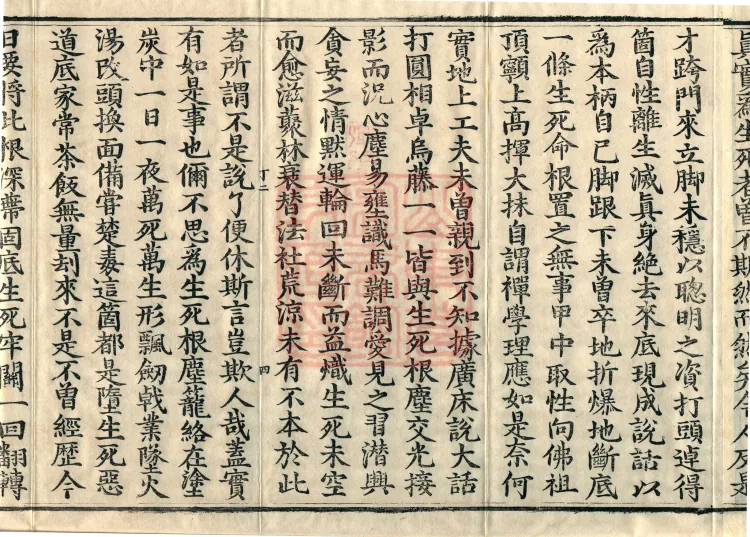 眞實爲生死未曾不期然而然今人
才跨門來立脚未穩以聰明之資打頭逴得
箇自性離生滅眞身絶去來底現成說話以
爲本柄自己脚跟下未曾卒地折爆地斷底
一條生死命根置之無事甲中取性向佛祖
頂𩕳上髙揮大抹自謂禪學理應如是奈何
實地上工夫未曽親到不知據廣床說大話
打圓相卓烏藤一一皆與生死根塵交光接
影而況心塵易壅識馬難調愛見之習潜興
貪妄之情黙運輪回未斷而益熾生死未空
而愈滋叢林衰替法社荒涼未有不本於此
丁二
四
者所謂不是說了便休斯言豈欺人哉蓋實
有如是事也儞不思爲生死根塵籠絡在塗
炭中一日一夜萬死萬生形飄劒戟業墜火
湯改頭換面備嘗楚毒這箇都是墮生死惡
道底家常茶飯無量刦來不是不曾經歷今
日要將此根深蔕固底生死牢關一回翻轉